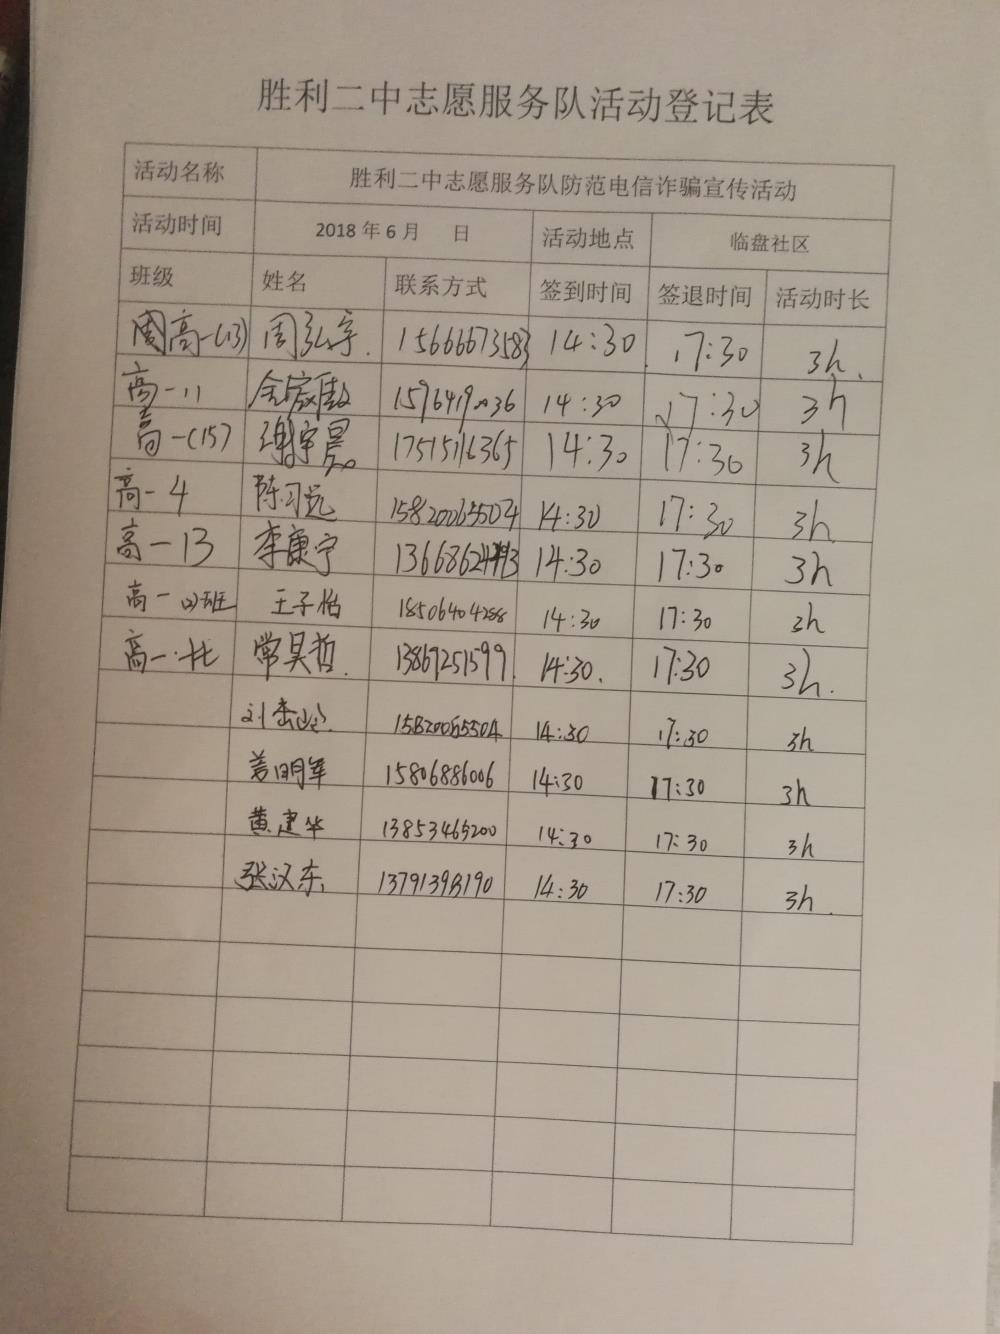 胜利二中志愿服务队活动登记表
活动名称 胜利二中志愿服务队防范电信诈骗宣传活动
活动时间 2018 年 6 月 日 活动地点 临盘社区
班级 姓名 联系方式 签到时间 签退时间 活动时长
高一(13) 周弘宇. 15666673583 14:30 17:30 3h.
高一11 14:30 17:30 3h
高一(15) 谢宇晨 14:30 17:30 3h
高一4 陈习远 15820065504 14:30 17:30 3h
高一13 李康宁 14:30 17:30 3h
高一 班 王子怡 18506404288 14:30 17:30 3h
高一 常昊哲. 13867251599 14:30. 17:30 3h.
15820065504 14:30 17:30 3h
姜明军 15806886006 14:30 17:30 3h
黄建华 13853465200 14:30 17:30 3h
张汉东 14:30 17:30 3h.